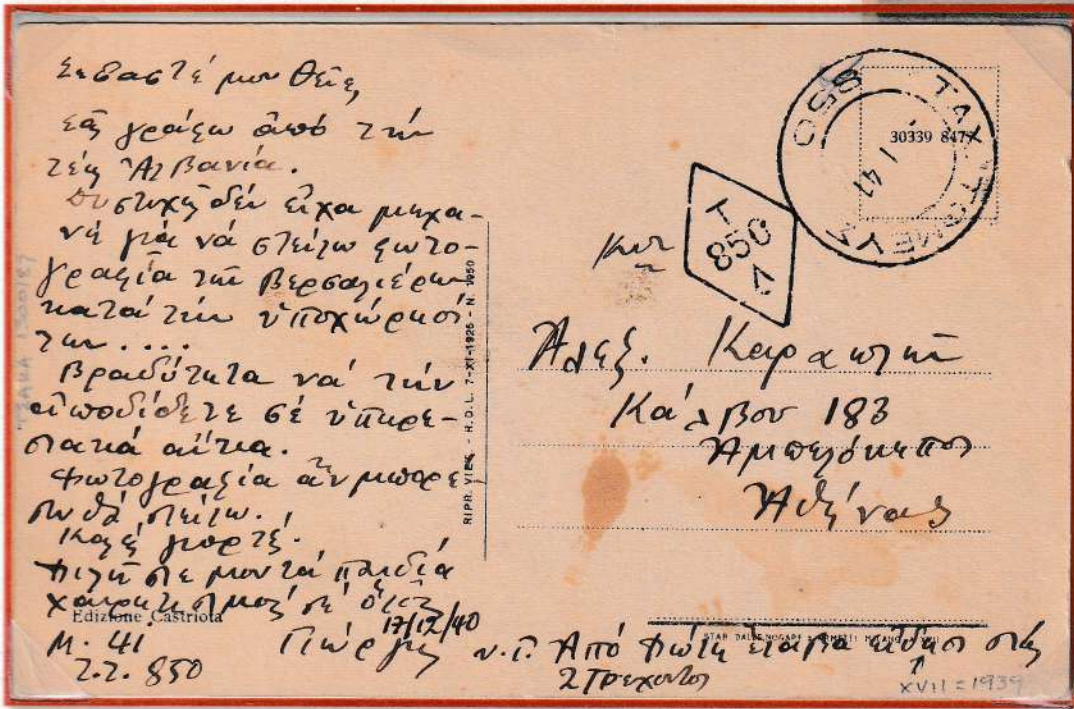 Σεβαστέ μου θεῖε,
Σᾶς γράφω ἀπό τήν
τέως Ἀλβανία.
Δυστυχῶς δέν εἶχα μηχα-
νή γιά νά στείλω φωτο-
γραφία τῶν Βερσαλιέρων
κατά τήν ὑποχώρησί
των ....
Βραδύτητα νά τήν
ἀποδίδετε σέ ὑπηρε-
σιακά αἴτια.
Φωτογραφία ἄν μπορέ
σω θά στείλω.
Καλές γιορτές.
Φιλῆστε μου τά παιδιά
χαιρετισμούς σέ ὅλους
17/12/40
Edizione Castriota
Γιώργος
Μ. 41
Τ.Τ. 850
RIPR. VIET. - R.D.L. 7-XI-1925 - N. 1950
850 ΤΑΧ ΤΟΜΕΥΣ
30339 847
1 41
Τ
850
Δ
Κον
Ἀλεξ. Καρ
Κάλβου 183
Ἀμπελόκηποι
Ἀθήνας
STAR DALLE NOGARE & ARMETTI MILANO
Ἀπό Φώτη ἔλαβα εἴδησι στάς
2 Τρέχοντος
XVII = 1939